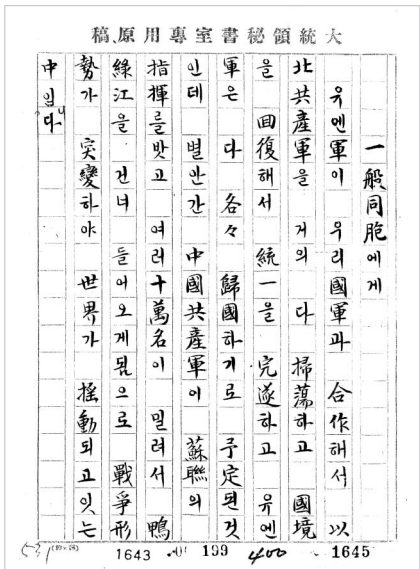 大統領秘書室專用原稿
一般同胞에게
유엔軍이 우리國軍과 合作해서 以
北共產軍을 거의 다 掃蕩하고 國境
을 回復해서 統一을 完遂하고 유엔
軍은 다 各々 歸國하기로 予定된것
인데 별안간 中國共產軍이 蘇聯의
指揮를 밧고 여러十萬名이 밀려서 鴨
綠江을 건너 들어오게됨으로 戰爭形
勢가 突變하야 世界가 搖動되고잇는
中입니다
(20×10)
1643
199
400
1645